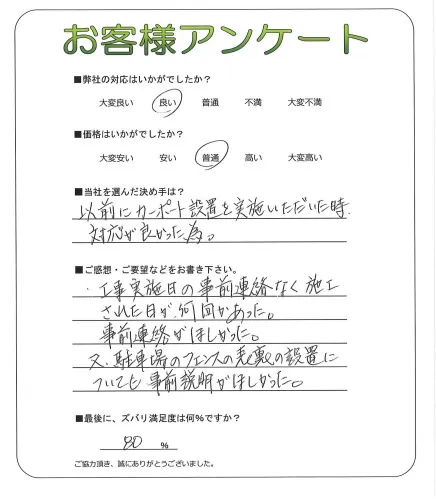 お客様アンケート
■弊社の対応はいかがでしたか？
大変良い 良い 普通 不満 大変不満
■価格はいかがでしたか？
大変安い 安い 普通 高い 大変高い
■当社を選んだ決め手は？
以前にカーポート設置を実施いただいた時
対応が良かった為。
■ご感想・ご要望などをお書き下さい。
・工事実施日の事前連絡なく施工
された日が、何回かあった。
事前連絡がほしかった。
又、駐車場のフェンスの表裏の設置に
ついても事前説明がほしかった。
■最後に、ズバリ満足度は何％ですか？
80 ％
ご協力頂き、誠にありがとうございました。